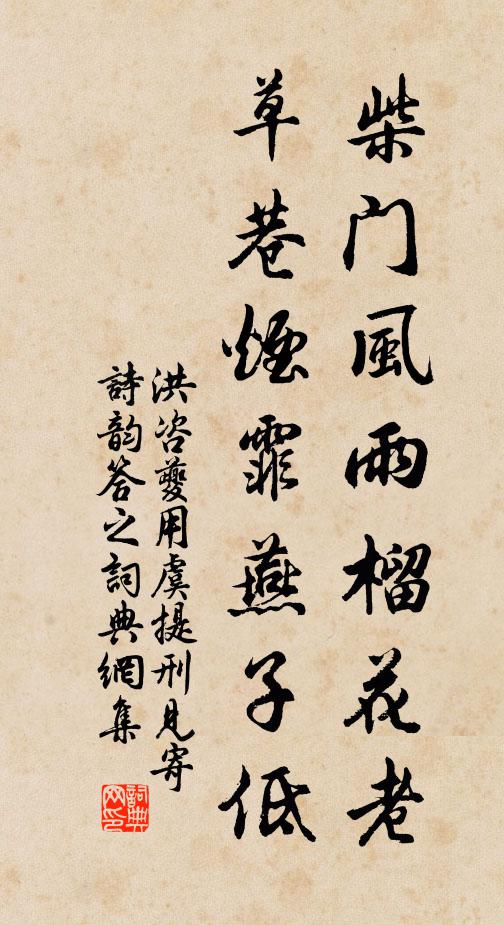 柴门風雨榴花老
草巷煙霏燕子低
洪咨夔用虞提刑見寄
詩韵答之詞典網集
詞典网印